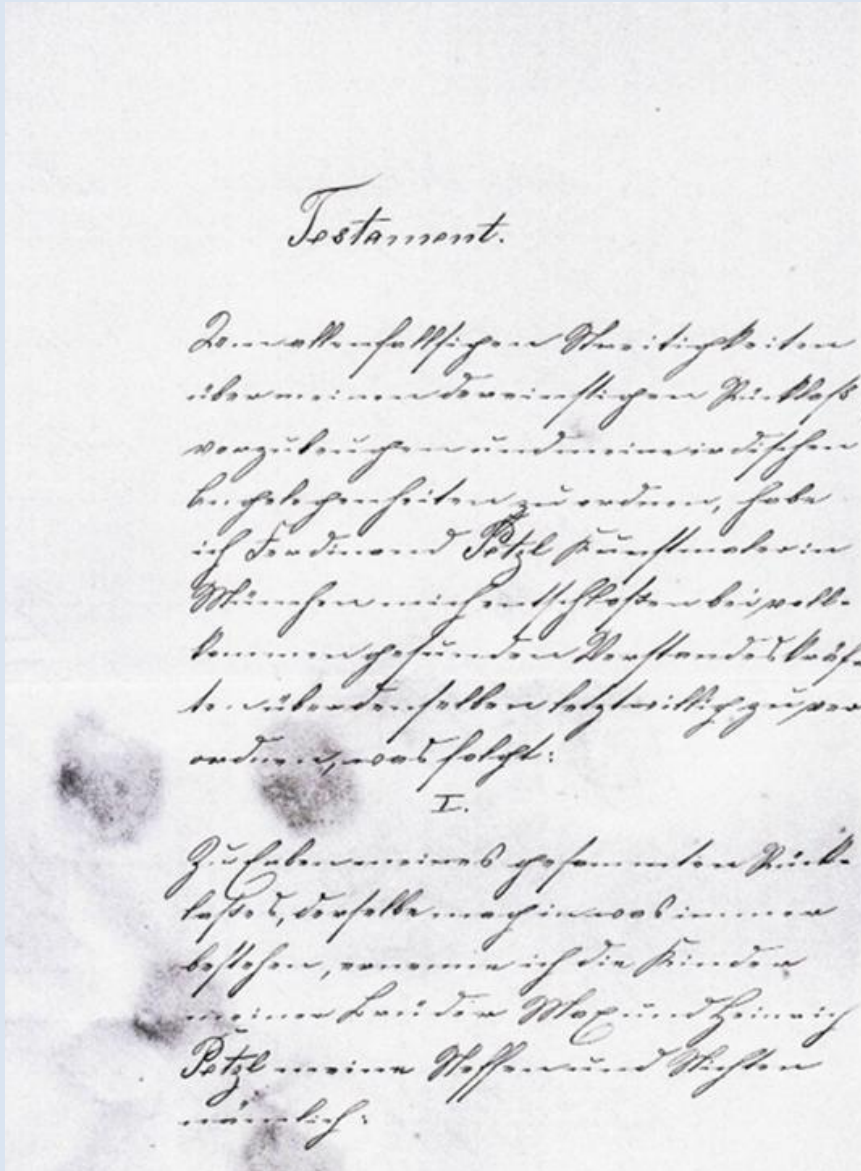 Testament.
Um allenfallsigen Streitigkeiten
über meinen dereinstigen Rücklaß
vorzubeugen und meine irdischen
Angelegenheiten zu ordnen, habe
ich Ferdinand Petzl Kunstmaler in
München mich entschloßen bei voll-
kommen gesunden Verstandeskräf-
ten über denselben letztwillig zu ver
ordnen, was folgt:
I.
Zu Erben meines gesammten Rück-
laßes, derselbe mag in was immer
bestehen, ernenne ich die Kinder
meiner Brüder Max und Heinrich
Petzl meine Neffen und Nichten
nämlich: